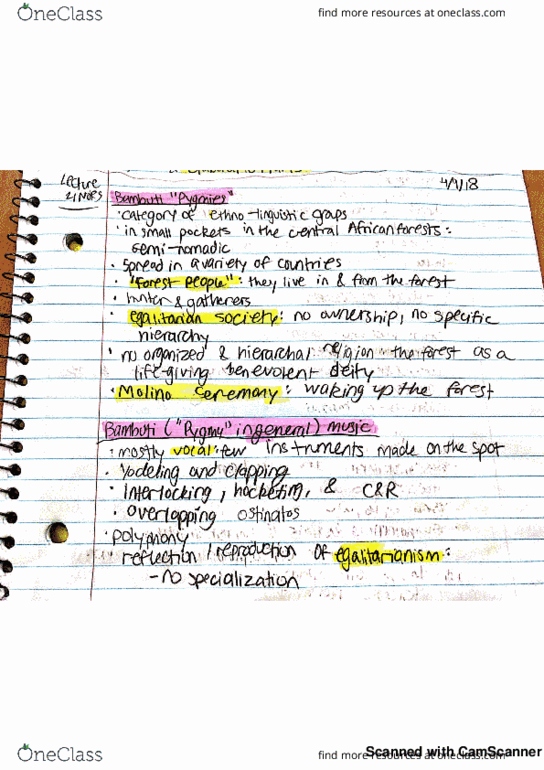 OneClass
find more resources at oneclass.com
Lecture
Notes
Bambuti "Pygmies"
· category of ethno-linguistic groups
· in small pockets in the central African forests:
semi-nomadic
· spread in a variety of countries
· "Forest People": they live in & from the forest
· hunter & gatherers
· egalitarian society: no ownership, no specific
hierarchy
· no organized & hierarchal religion - the forest as a
life-giving benevolent deity
· Molino ceremony: waking up the forest
Bambuti ("Pygmy" in general) music
· mostly vocal: few instruments made on the spot
· Yodeling and clapping
· Interlocking, hocketing, & C&R
· overlapping ostinatos
· polyphony
reflection / reproduction of egalitarianism:
- no specialization
OneClass
find more resources at oneclass.com
Scanned with CamScanner